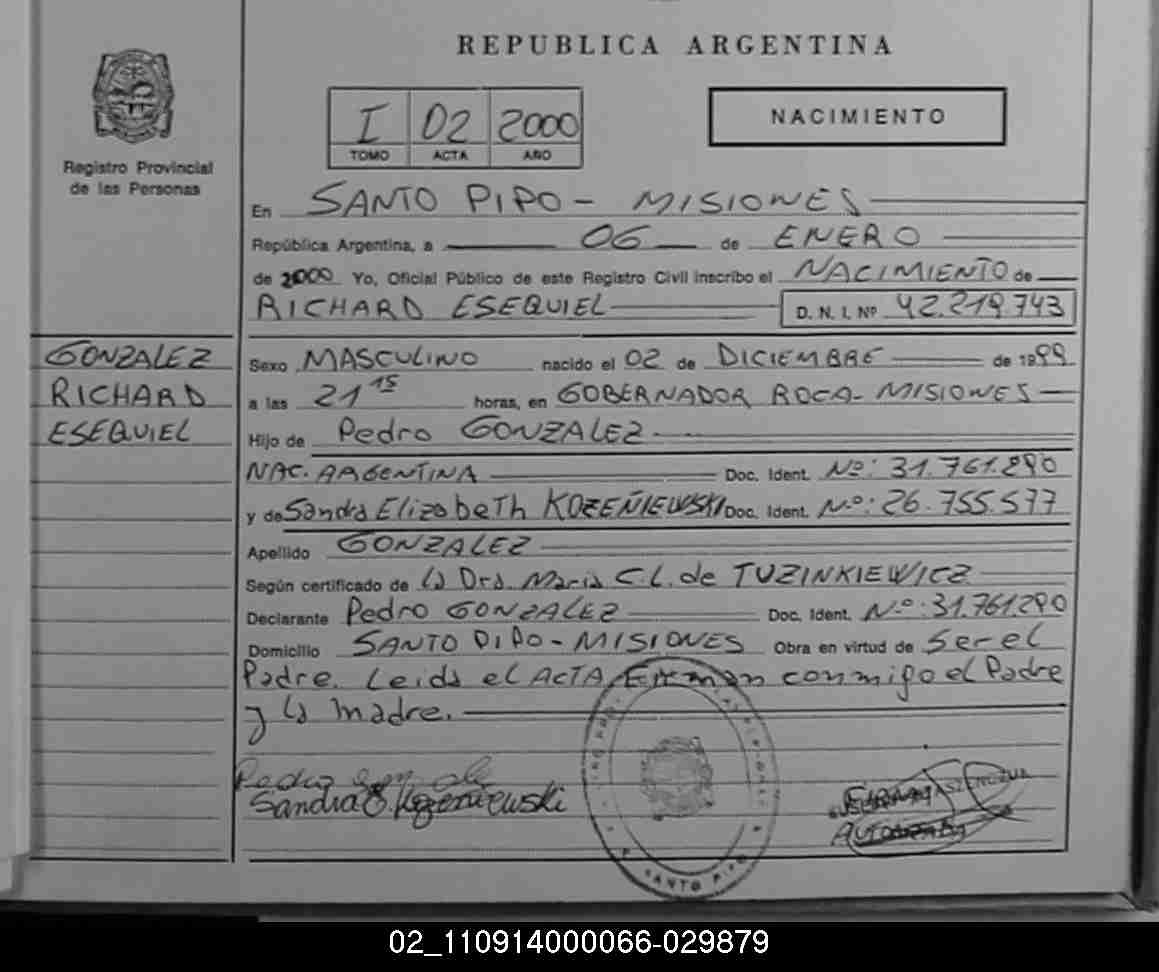 REPUBLICA ARGENTINA
I D2 2000
TOMO ACTA AÑO
NACIMIENTO
Registro Provincial
de las Personas
En SANTO PIPO - MISIONES
República Argentina, a 06 de ENERO
de 2000 Yo, Oficial Público de este Registro Civil inscribo el NACIMIENTO de
RICHARD ESEQUIEL D. N. I. Nº 42.219.743
GONZALEZ
RICHARD
ESEQUIEL
Sexo MASCULINO nacido el 02 de DICIEMBRE de 1999
a las 21 15 horas, en GOBERNADOR ROCA - MISIONES
Hijo de Pedro GONZALEZ
NAC. ARGENTINA Doc. Ident. Nº: 31.761.290
y de Sandra Elizabeth KOZEÑIEWSKI Doc. Ident. Nº: 26.755.577
Apellido GONZALEZ
Según certificado de la Dra. Maria C.L. de TUZINKIEWICZ
Declarante Pedro GONZALEZ Doc. Ident. Nº: 31.761.290
Domicilio SANTO PIPO - MISIONES Obra en virtud de Ser el
Padre. Leida el ACTA Firman conmigo el Padre
y la madre.
Sandra E. Kozeniewski
SANTO PIPO
02_110914000066-029879